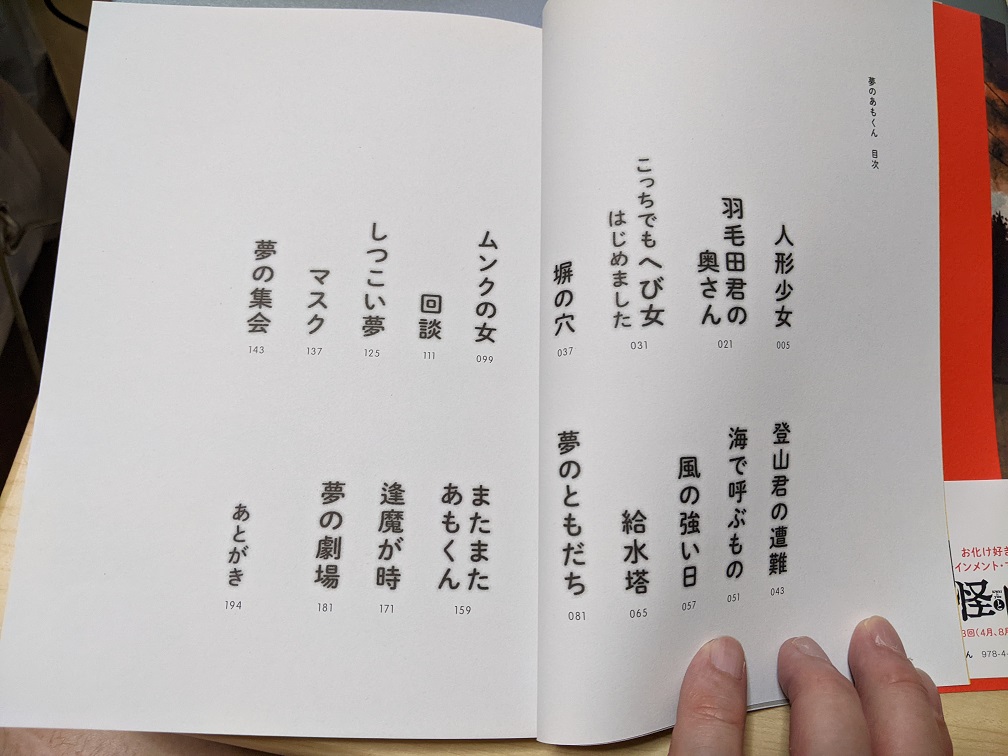 夢のあもくん　目次
人形少女
005
羽毛田君の
奥さん
021
こっちでもへび女
はじめました
031
塀の穴
037
登山君の遭難
043
海で呼ぶもの
051
風の強い日
057
給水塔
065
夢のともだち
081
ムンクの女
099
回談
111
しつこい夢
125
マスク
137
夢の集会
143
またまた
あもくん
159
逢魔が時
171
夢の劇場
181
あとがき
194
お化け好き
インメント・
怪
3回(4月、8月
ん　978-4-